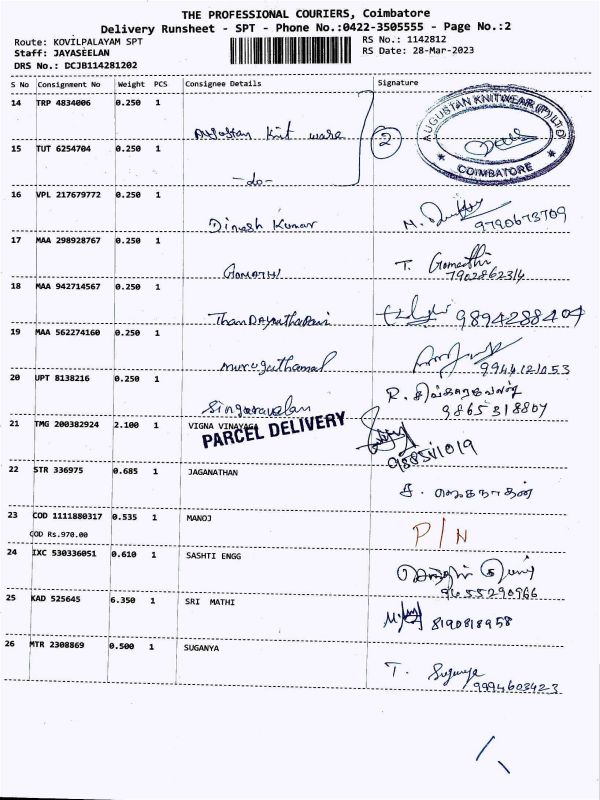 THE PROFESSIONAL COURIERS, Coimbatore
Delivery Runsheet - SPT - Phone No.:0422-3505555 - Page No.:2
Route: KOVILPALAYAM SPT
RS No.: 1142812
Staff: JAYASEELAN
RS Date: 28-Mar-2023
DRS No.: DCJB114281202
S No Consignment No Weight PCS Consignee Details Signature
14 TRP 4834006 0.250 1
Augustan Knit ware
2
AUGUSTAN KNITWEAR (P) LTD
COIMBATORE
15 TUT 6254704 0.250 1
-do-
16 VPL 217679772 0.250 1
Dinesh Kumar
9790673709
17 MAA 298928767 0.250 1
GOMATHI T. Gomathi
7902862314
18 MAA 942714567 0.250 1
9894288404
19 MAA 562274160 0.250 1
9944121053
20 UPT 8138216 0.250 1
Singaravelan
9865318807
21 TMG 200382924 2.100 1 VIGNA VINAYAGA
PARCEL DELIVERY
22 STR 336975 0.685 1 JAGANATHAN
23 COD 1111880317 0.535 1 MANOJ
COD Rs.970.00
P/N
24 IXC 530336051 0.610 1 SASHTI ENGG
9655290966
25 KAD 525645 6.350 1 SRI MATHI
8190818958
26 MTR 2308869 0.500 1 SUGANYA
T. Suganya
9994603423